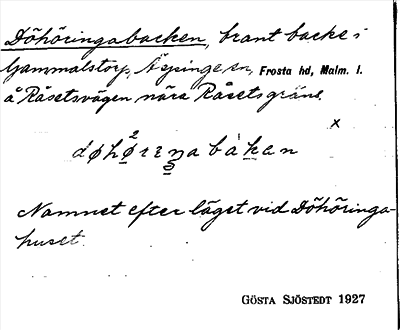 Döhöringabacken, brant backe i
Gammalstorp, Äspinge sn, Frosta hd, Malm. l.
å Råsetsvägen nära Råsetsgräns.
x
døhǿrɪŋabàkan
Namnet efter läget vid Döhöringa-
huset.
GÖSTA SJÖSTEDT 1927